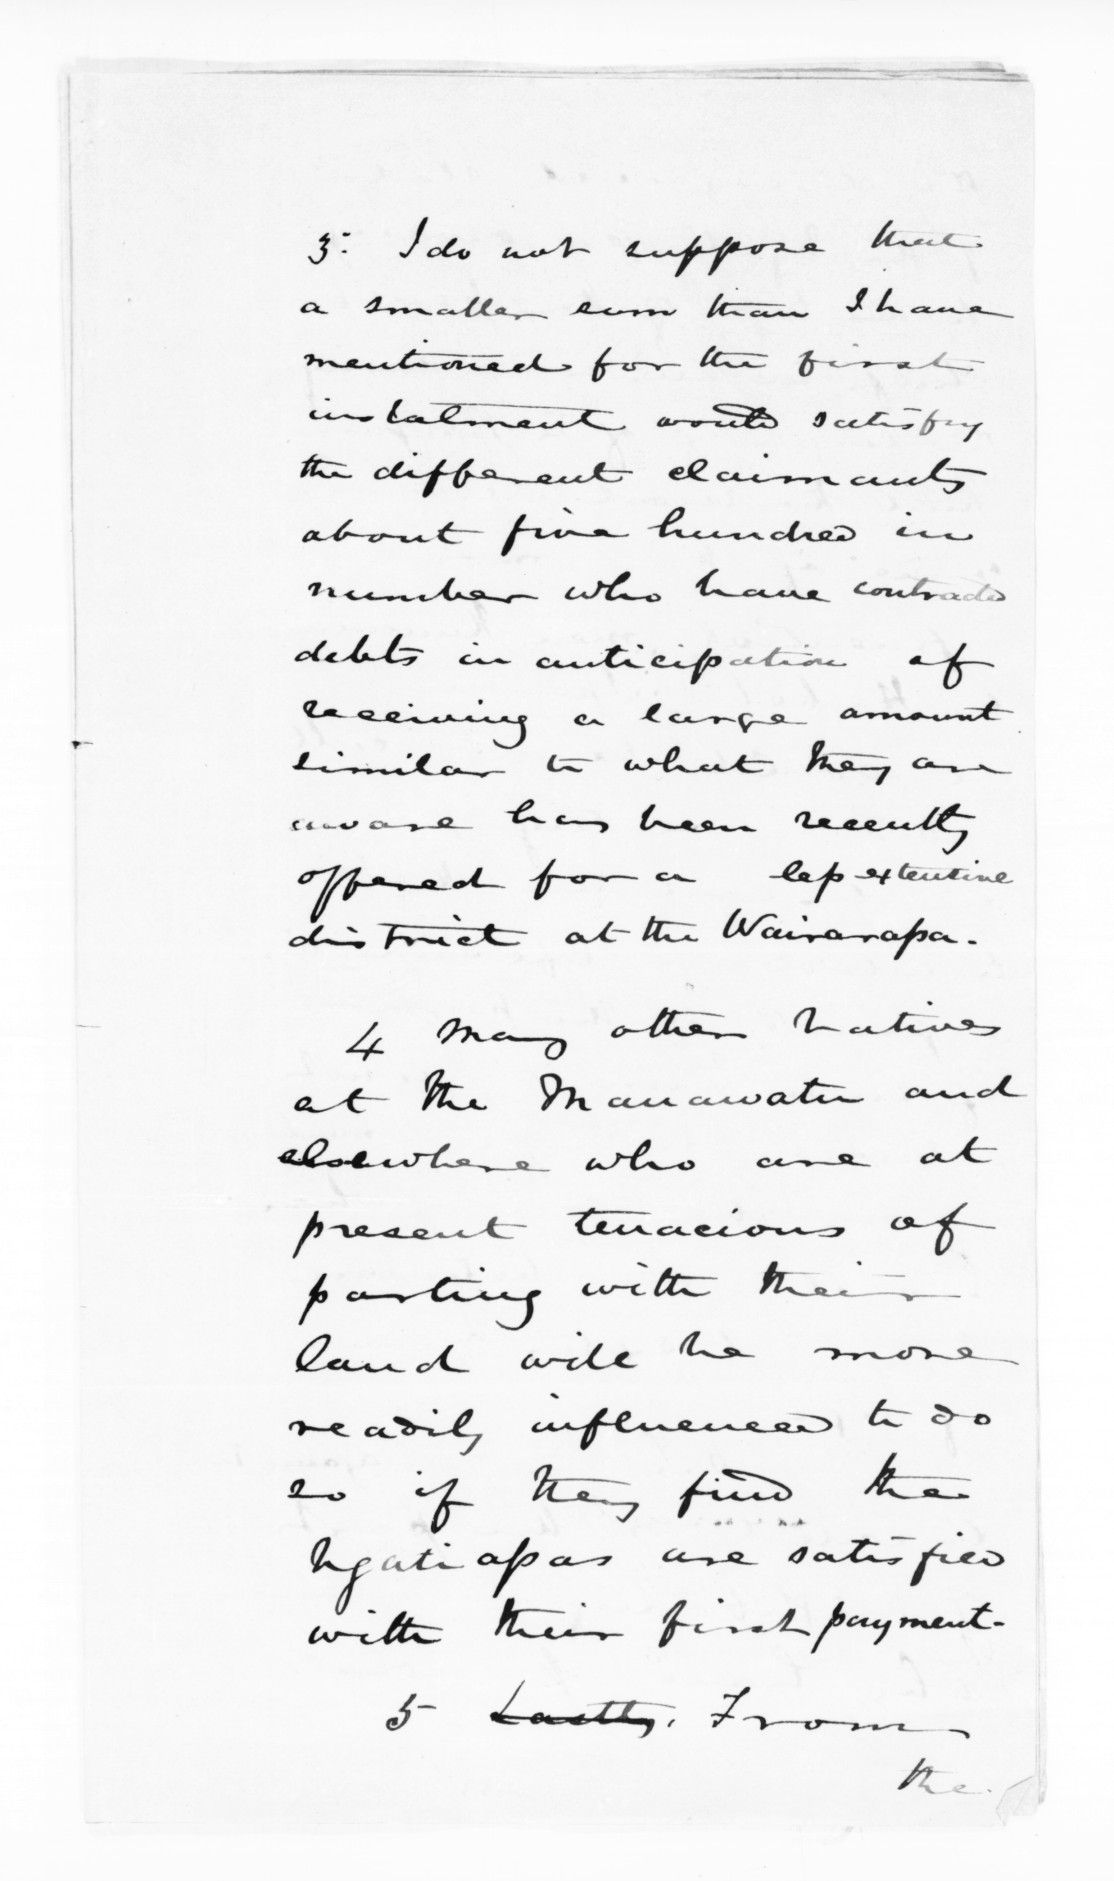 3: I do not suppose that
a smaller sum than I have
mentioned for the first
instalment would satisfy
the different claimants
about five hundred in
number who have contracted
debts in anticipation of
receiving a large amount
similar to what they are
aware has been recently
offered for a less extensive
district at the Wairarapa.
4 Many other Natives
at the Manawatu and
elsewhere who are at
present tenacious of
parting with their
land will be more
readily influenced to do
so if they find the
Ngatiapas are satisfied
with their first payment.
5 Lastly, From
the